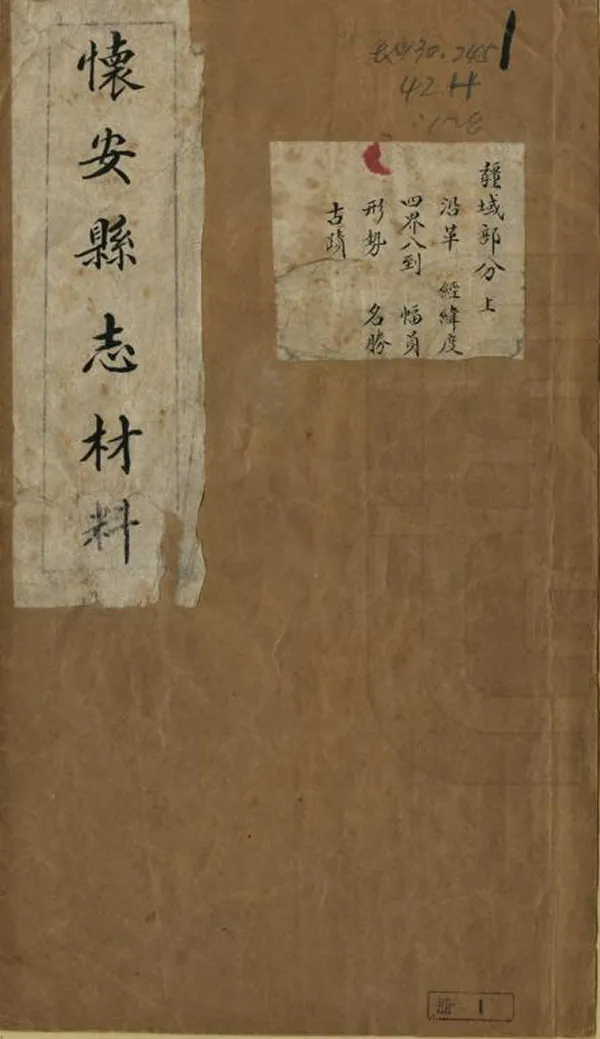 懷安縣志材料
疆域部分上
沿革 經緯度
四界八到 幅員
形勢 名勝
古蹟
30.245
42
1
冊 1